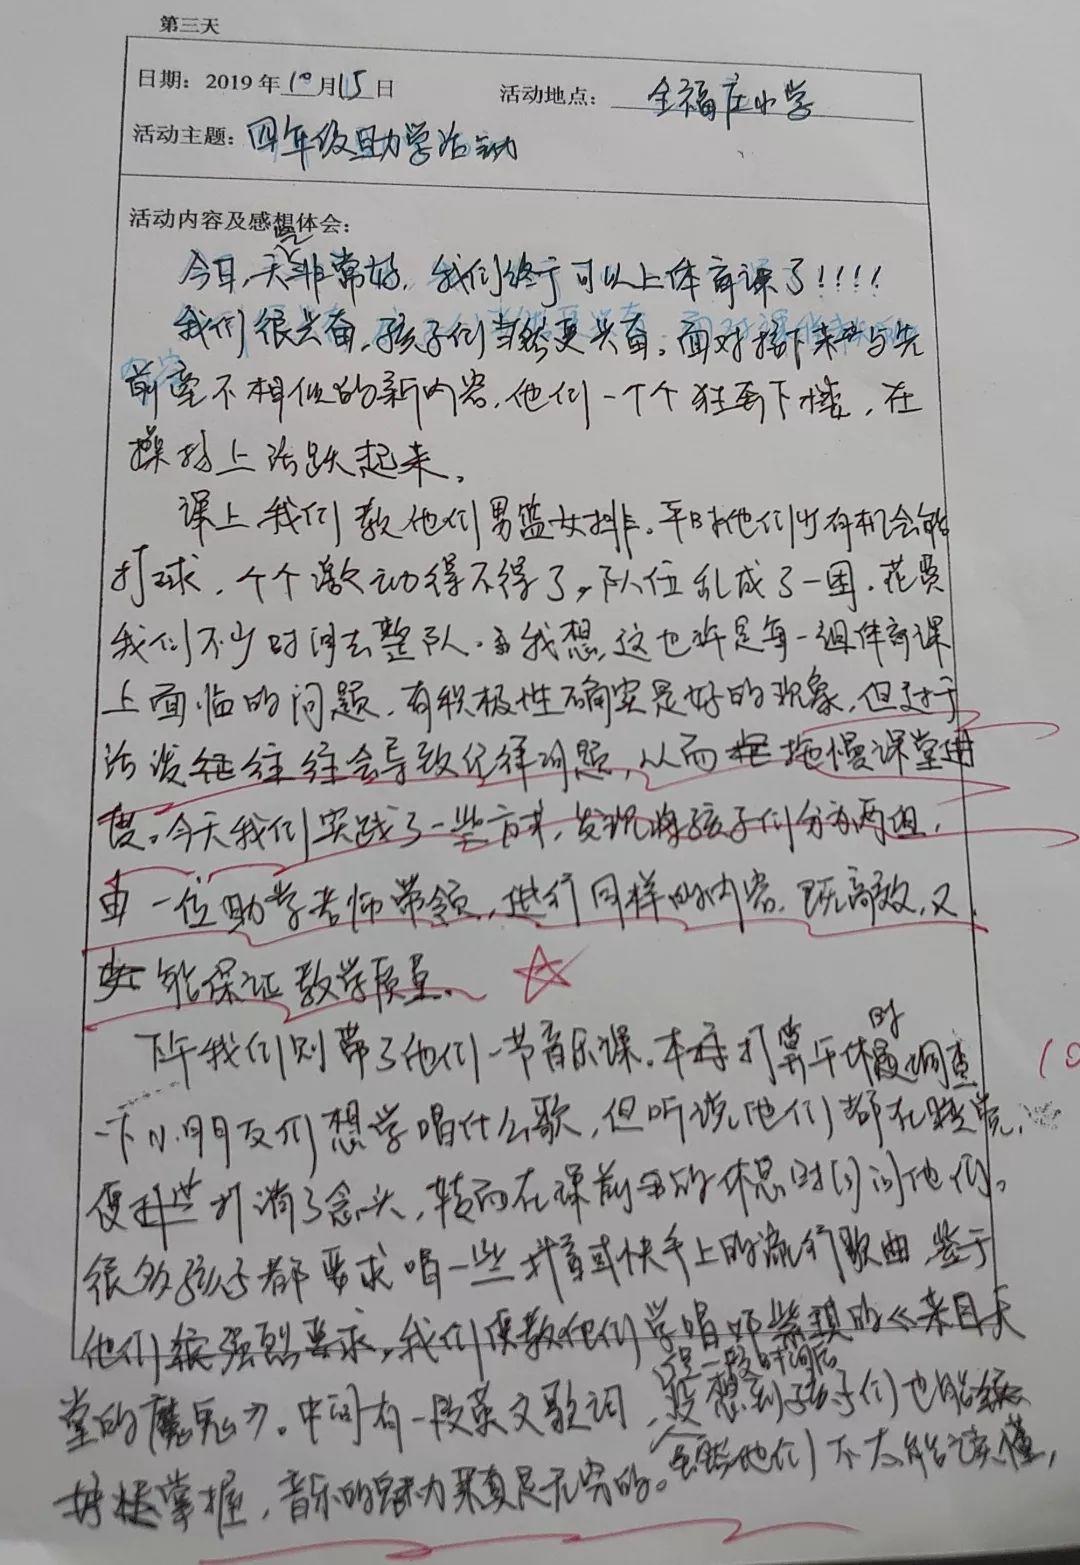 第三天
日期：2019年10月15日 活动地点：全福庄小学
活动主题：四年级助学活动
活动内容及感想体会：
今日，天气非常好，我们终于可以上体育课了！！！！
我们很兴奋，孩子们当然更兴奋。面对接下来与先
前完全不相似的新内容，他们一个个狂奔下楼，在
操场上活跃起来。
课上，我们教他们男篮女排。平时他们少有机会能
打球，个个激动得不得了，队伍乱成了一团，花费
我们不少时间去整队。我想，这也许是每一趟体育课
上面临的问题，有积极性确实是好的现象，但过于
活泼往往会导致纪律问题，从而拖慢课堂进
度。今天我们实践了一些方式，发现将孩子们分为两组，
由一位助学老师带领，进行同样的内容，既高效，又
能保证教学质量。
下午我们则带了他们一节音乐课。本来打算午休时调查
一下小朋友们想学唱什么歌，但听说他们都在睡觉，
便打消了念头，转而在课前的休息时间问他们。
很多孩子都要求唱一些抖音或快手上的流行歌曲，鉴于
他们强烈要求，我们便教他们学唱邓紫棋的《来自天
堂的魔鬼》。中间有一段英文歌词，虽然他们不太能读懂，
没想到一段时间后孩子们也能
掌握，音乐的魅力果真是无穷的。